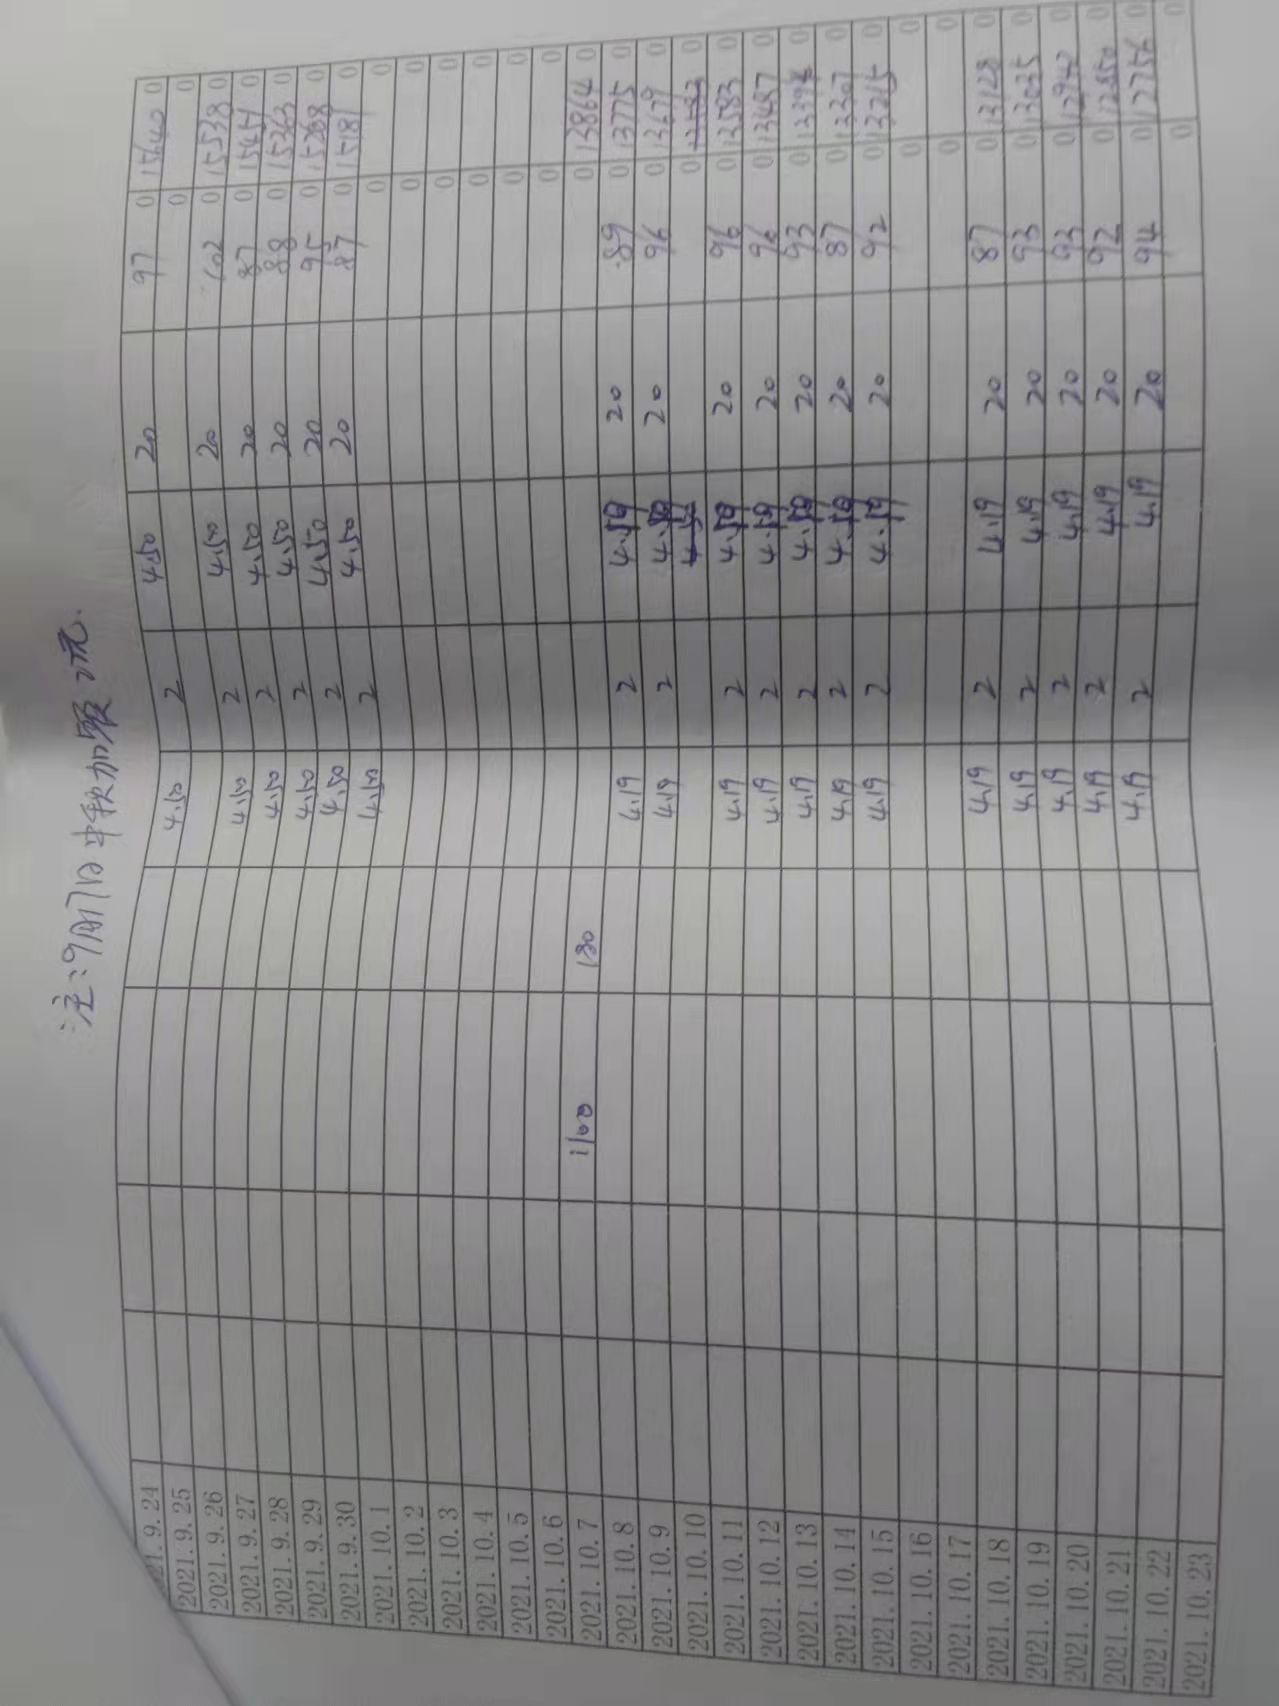 注:9月17日中秋加餐 2元.
2021.9.24 4.50 2 4.50 20 97 0 15640 0
2021.9.25 0 0
2021.9.26 4.50 2 4.50 20 102 0 15538 0
2021.9.27 4.50 2 4.50 20 87 0 15451 0
2021.9.28 4.50 2 4.50 20 88 0 15363 0
2021.9.29 4.50 2 4.50 20 95 0 15268 0
2021.9.30 4.50 2 4.50 20 87 0 15181 0
2021.10.1 0 0
2021.10.2 0 0
2021.10.3 0 0
2021.10.4 0 0
2021.10.5 0 0
2021.10.6 0 0
2021.10.7 1100 180 0 13864 0
2021.10.8 4.19 2 4.19 20 89 0 13775 0
2021.10.9 4.19 2 4.19 20 96 0 13679 0
2021.10.10 0 0
2021.10.11 4.19 2 4.19 20 96 0 13583 0
2021.10.12 4.19 2 4.19 20 96 0 13487 0
2021.10.13 4.19 2 4.19 20 93 0 13394 0
2021.10.14 4.19 2 4.19 20 87 0 13307 0
2021.10.15 4.19 2 4.19 20 92 0 13215 0
2021.10.16 0 0
2021.10.17 0 0
2021.10.18 4.19 2 4.19 20 87 0 13128 0
2021.10.19 4.19 2 4.19 20 93 0 13035 0
2021.10.20 4.19 2 4.19 20 93 0 12942 0
2021.10.21 4.19 2 4.19 20 92 0 12850 0
2021.10.22 4.19 2 4.19 20 94 0 12756 0
2021.10.23 0 0